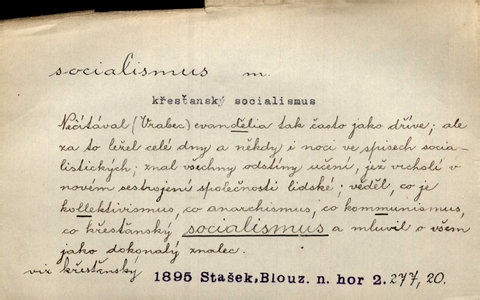 socialismus m.
křesťanský socialismus
Nečítával (Vrabec) evandělia tak často jako dříve; ale
za to ležel celé dny a někdy i noci ve spisech socia-
listických; znal všechny odstíny učení, jež vrcholí v
novém sestrojení společnosti lidské; věděl, co je
kollektivismus, co anarchismus, co kommunismus,
co křesťanský socialismus a mluvil o všem
jako dokonalý znalec.
viz křesťanský 1895 Stašek, Blouz. n. hor 2. 277, 20.